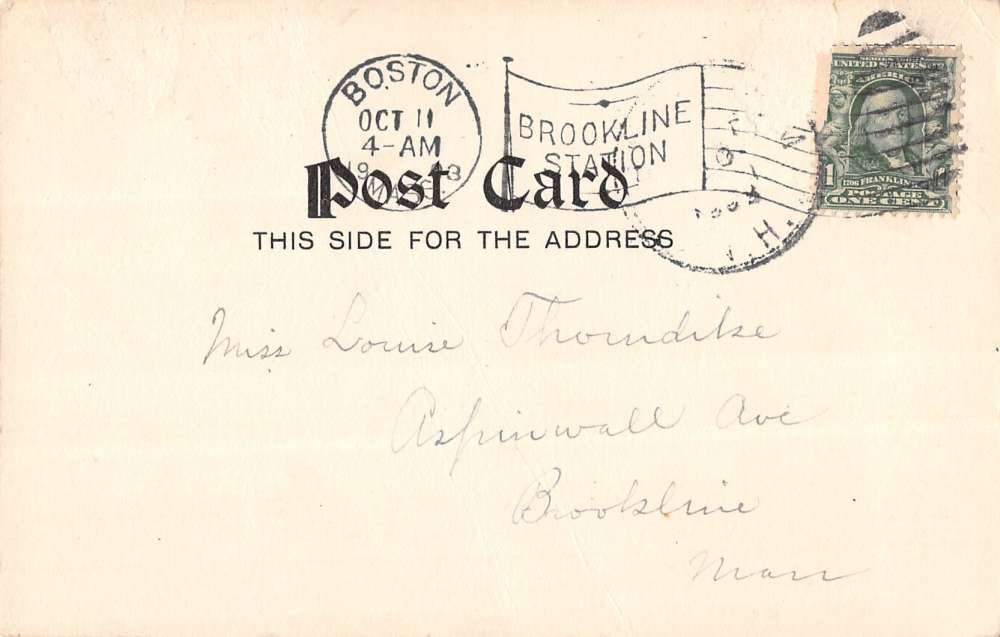 BOSTON
OCT 11
4-AM
MASS.
BROOKLINE
STATION
UNITED STATES
AMERICA
FRANKLIN
POSTAGE
ONE CENT
1
Post Card
THIS SIDE FOR THE ADDRESS
Miss Louise Thorndike
Aspinwall Ave
Brookline
Mass